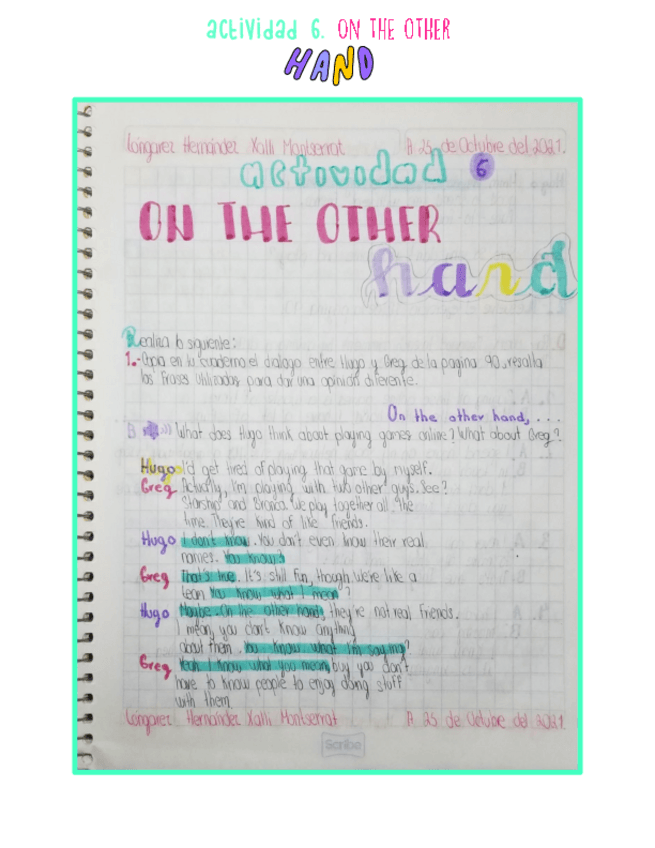 actividad 6. ON THE OTHER
HAND
Longarez Hernández Xalli Montserrat A 25 de Octubre del 2021.
actividad 6
ON THE OTHER
hand
Realiza lo siguiente:
1.- Copia en tu cuaderno el dialogo entre Hugo y Greg de la pagina 90, resalta
las frases utilizadas para dar una opinión diferente.
On the other hand, ...
B What does Hugo think about playing games online? What about Greg?
Hugo I'd get tired of playing that game by myself.
Greg Actually, I'm playing with two other guys. See?
Starship and Bronca. We play together all the
time. They're kind of like friends.
Hugo I don't know. You don't even know their real
names. You know?
Greg That's true. It's still fun, though. We're like a
team You know what I mean?
Hugo Maybe. On the other hand, they're not real friends.
I mean, you don't know anything
about them. You know what I'm saying?
Greg Yeah I know what you mean, buy you don't
have to know people to enjoy doing stuff
with them.
Longarez Hernández Xalli Montserrat A 25 de Octubre del 2021
Scribe